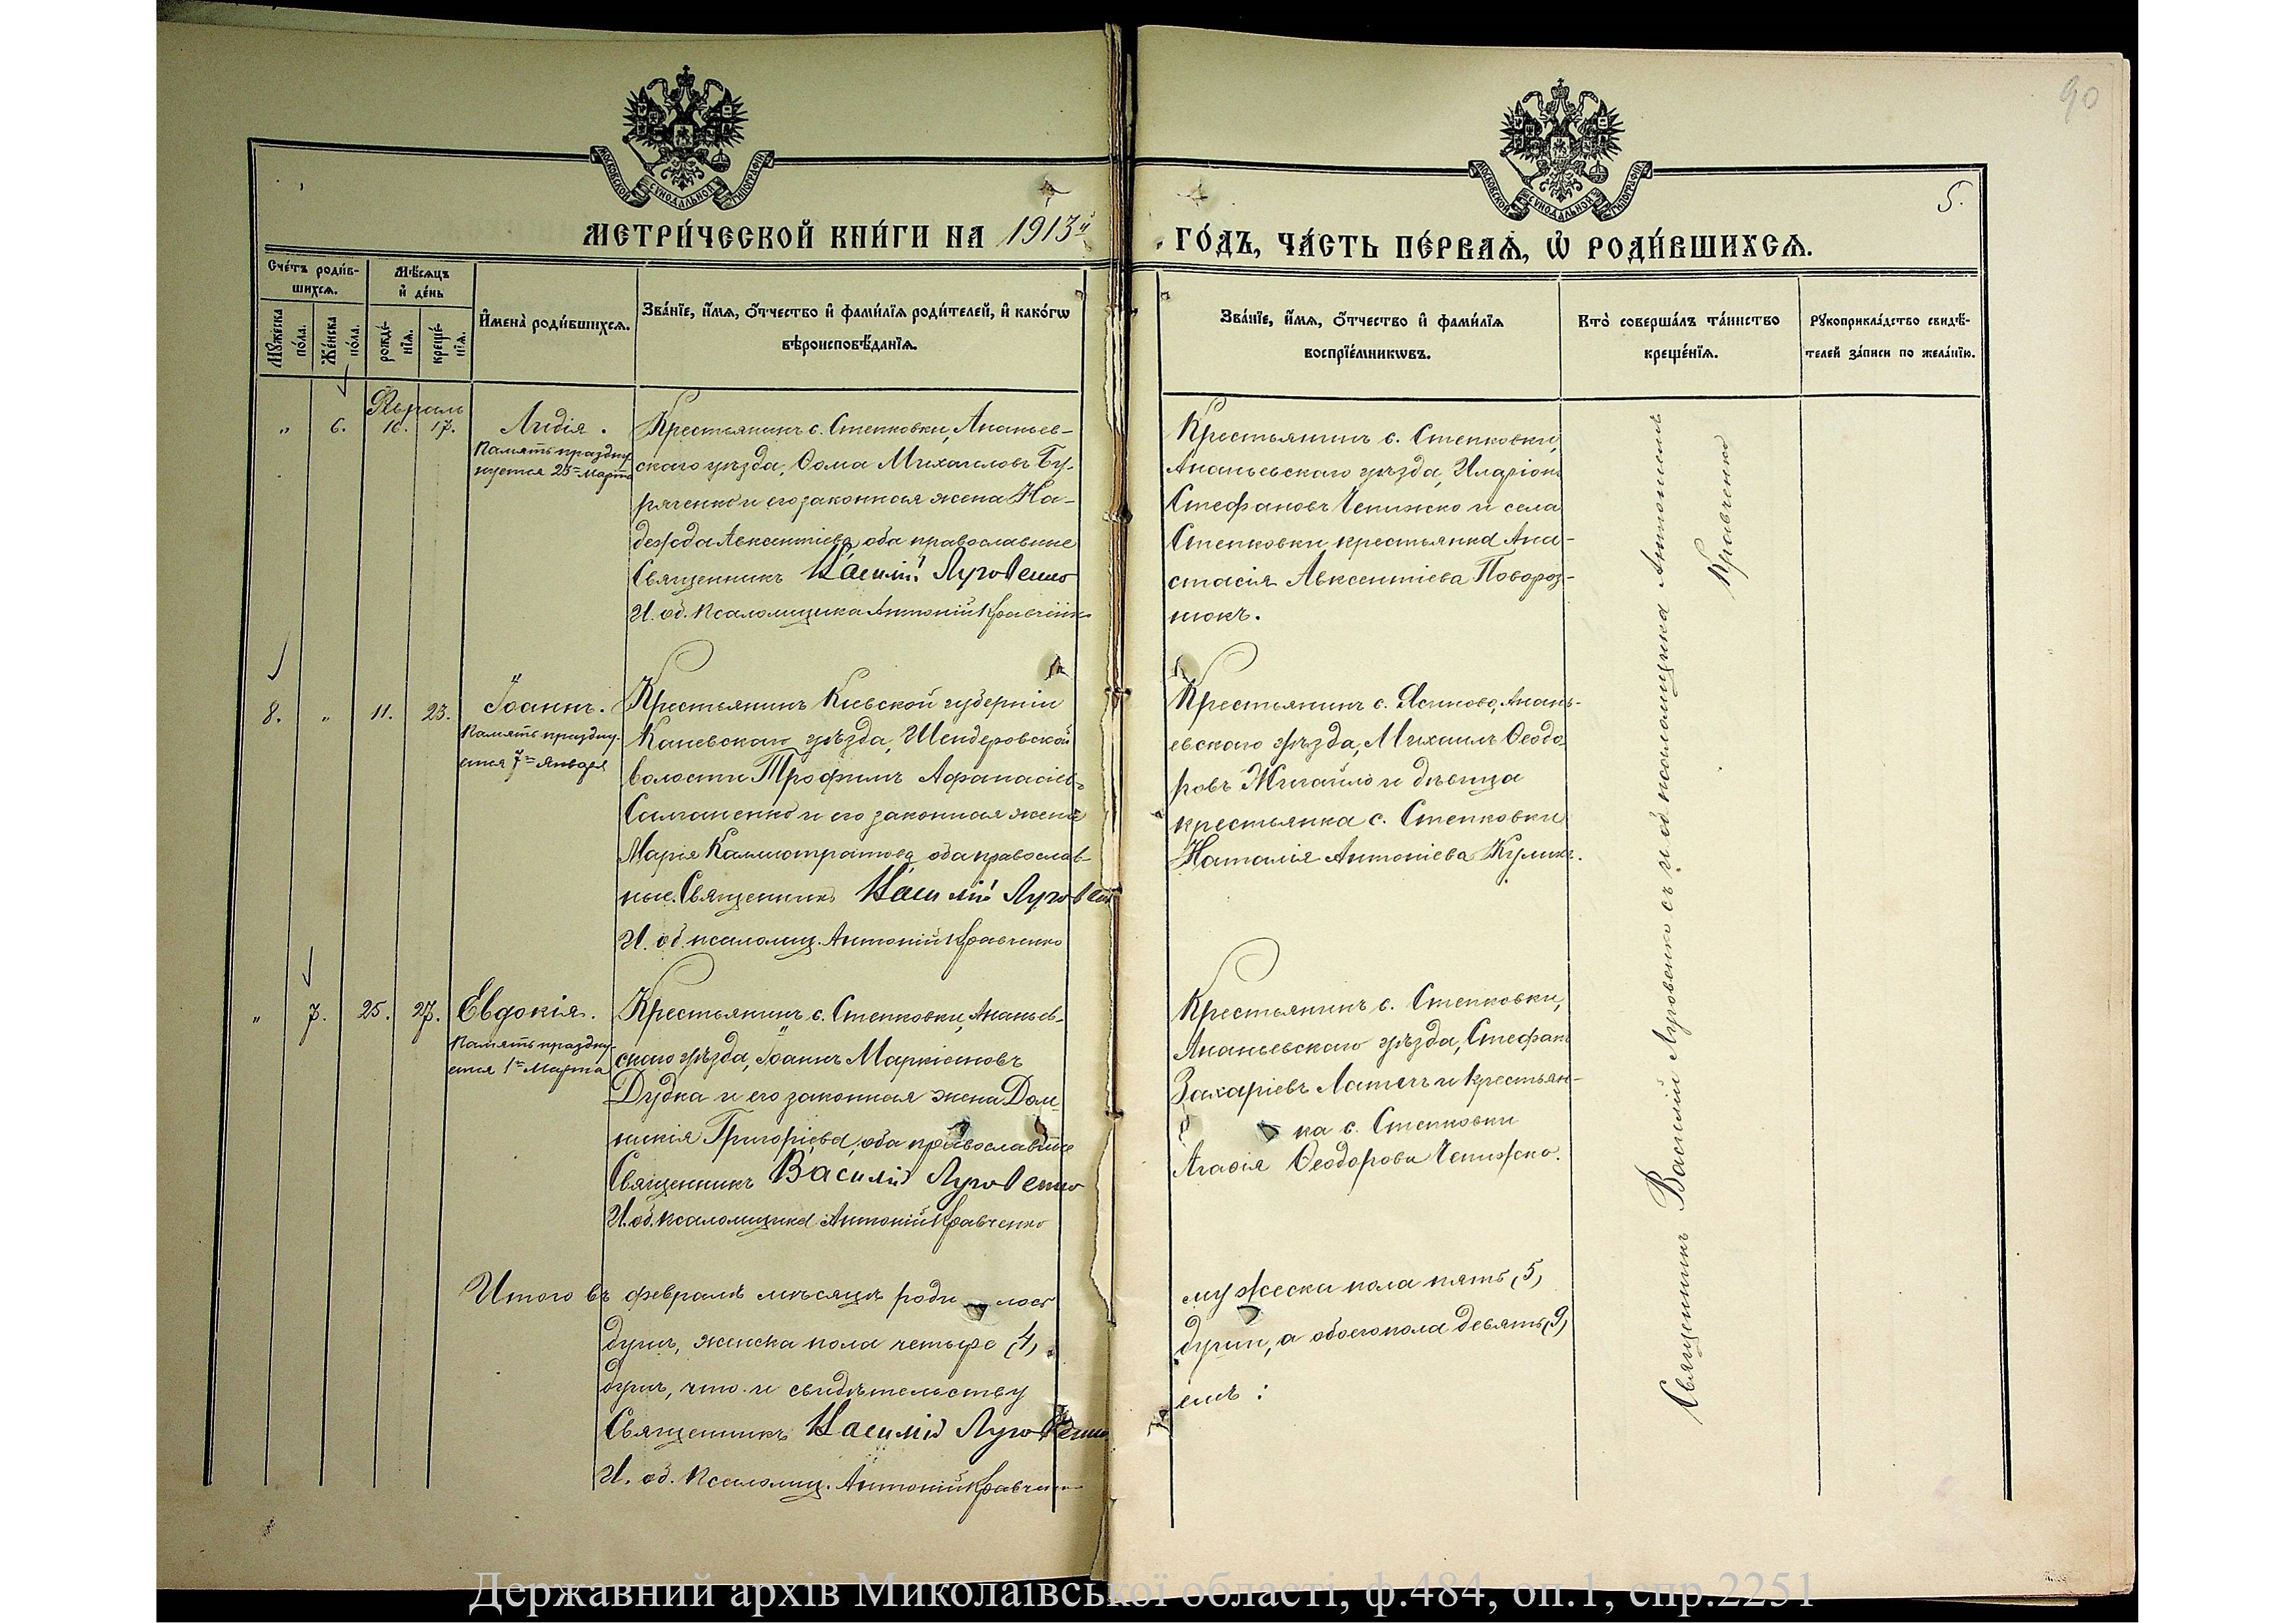 90
5.
МОСКОВСКОЙ СѴНОДАЛЬНОЙ ТИПОГРАФІИ
МОСКОВСКОЙ СѴНОДАЛЬНОЙ ТИПОГРАФІИ
МЕТРИ́ЧЕСКОЙ КНИ́ГИ НА 1913й
ГО́ДЪ, ЧА́СТЬ ПЕ́РВАѦ, Ѡ҆ РОДИ́ВШИХСѦ.
Сче́тъ роди́в-
шихсѧ.
Мꙋ́жеска по́ла.
Же́нска по́ла.
Мѣ́сѧцъ
и҆ де́нь
рожде́-
нїѧ.
креще́-
нїѧ.
И҆мена̀ роди́вшихсѧ.
Зва́нїе, и҆́мѧ, ѻ҆́тчество и҆ фами́лїѧ роди́телей, и҆ како́гѡ
вѣроисповѣ́данїѧ.
Зва́нїе, и҆́мѧ, ѻ҆́тчество и҆ фами́лїѧ
воспрїе́мникѡвъ.
Кто̀ соверша́лъ та́инство
креще́нїѧ.
Рꙋкоприкла́дство свидѣ́-
телей за́писи по жела́нїю.
Февраль
" 6. 16. 17.
Лидія.
Память праздну
нуется 25го Марта
Крестьянинъ с. Степковки, Ананьев-
скаго уѣзда, Ѳома Михаиловъ Бу-
ряченко и его законная жена На-
дежда Авксентіева, оба православные
Священникъ Василій Луговенко
И. об. Псаломщика Антоній Кравченк
Крестьянинъ с. Степковки,
Ананьевскаго уѣзда, Иларіонъ
Стефановъ Чепижко и села
Степковки крестьянка Ана-
стасія Авксентіева Повороз-
нюкъ.
8. " 11. 23.
Іоаннъ.
Память праздну-
ется 7го Января
Крестьянинъ Кіевской губерніи
Каневскаго уѣзда, Шендеровской
волости Трофимъ Афанасіевъ
Саманенко и его законная жена
Марія Каллистратова оба православ-
ные. Священникъ Василій Луговен
И. об. псаломщ. Антоній Кравченко
Крестьянинъ с. Ясиново, Анань-
евскаго уѣзда, Михаилъ Ѳеодо
ровъ Жигайло и дѣвица
крестьянка с. Степковки
Наталія Антоніева Куликъ.
" 7. 25. 27.
Евдокія.
Память праздну-
ется 1го Марта
Крестьянинъ с. Степковки, Ананьев-
скаго уѣзда, Іоаннъ Маркіановъ
Дудка и его законная жена Дом-
никія Григоріева, оба православные
Священникъ Василій Луговенко
И. об. псаломщика Антоній Кравченко
Крестьянинъ с. Степковки,
Ананьевскаго уѣзда, Стефанъ
Захаріевъ Латычъ и крестьян-
ка с. Степковки
Агафія Ѳеодорова Чепижко.
Священникъ Василій Луговенко съ и об псаломщика Антоніемъ
Кравченко
Итого въ февралѣ мѣсяцѣ роди лось
душъ, женска пола четыре (4)
душъ, что и свидѣтельству
Священникъ Василій Луговенко
И. об. Псаломщ. Антоній Кравченко
мужеска пола пять (5)
души, а обоего пола девять (9)
емъ:
Державний архів Миколаївської області, ф.484, оп.1, спр.2251